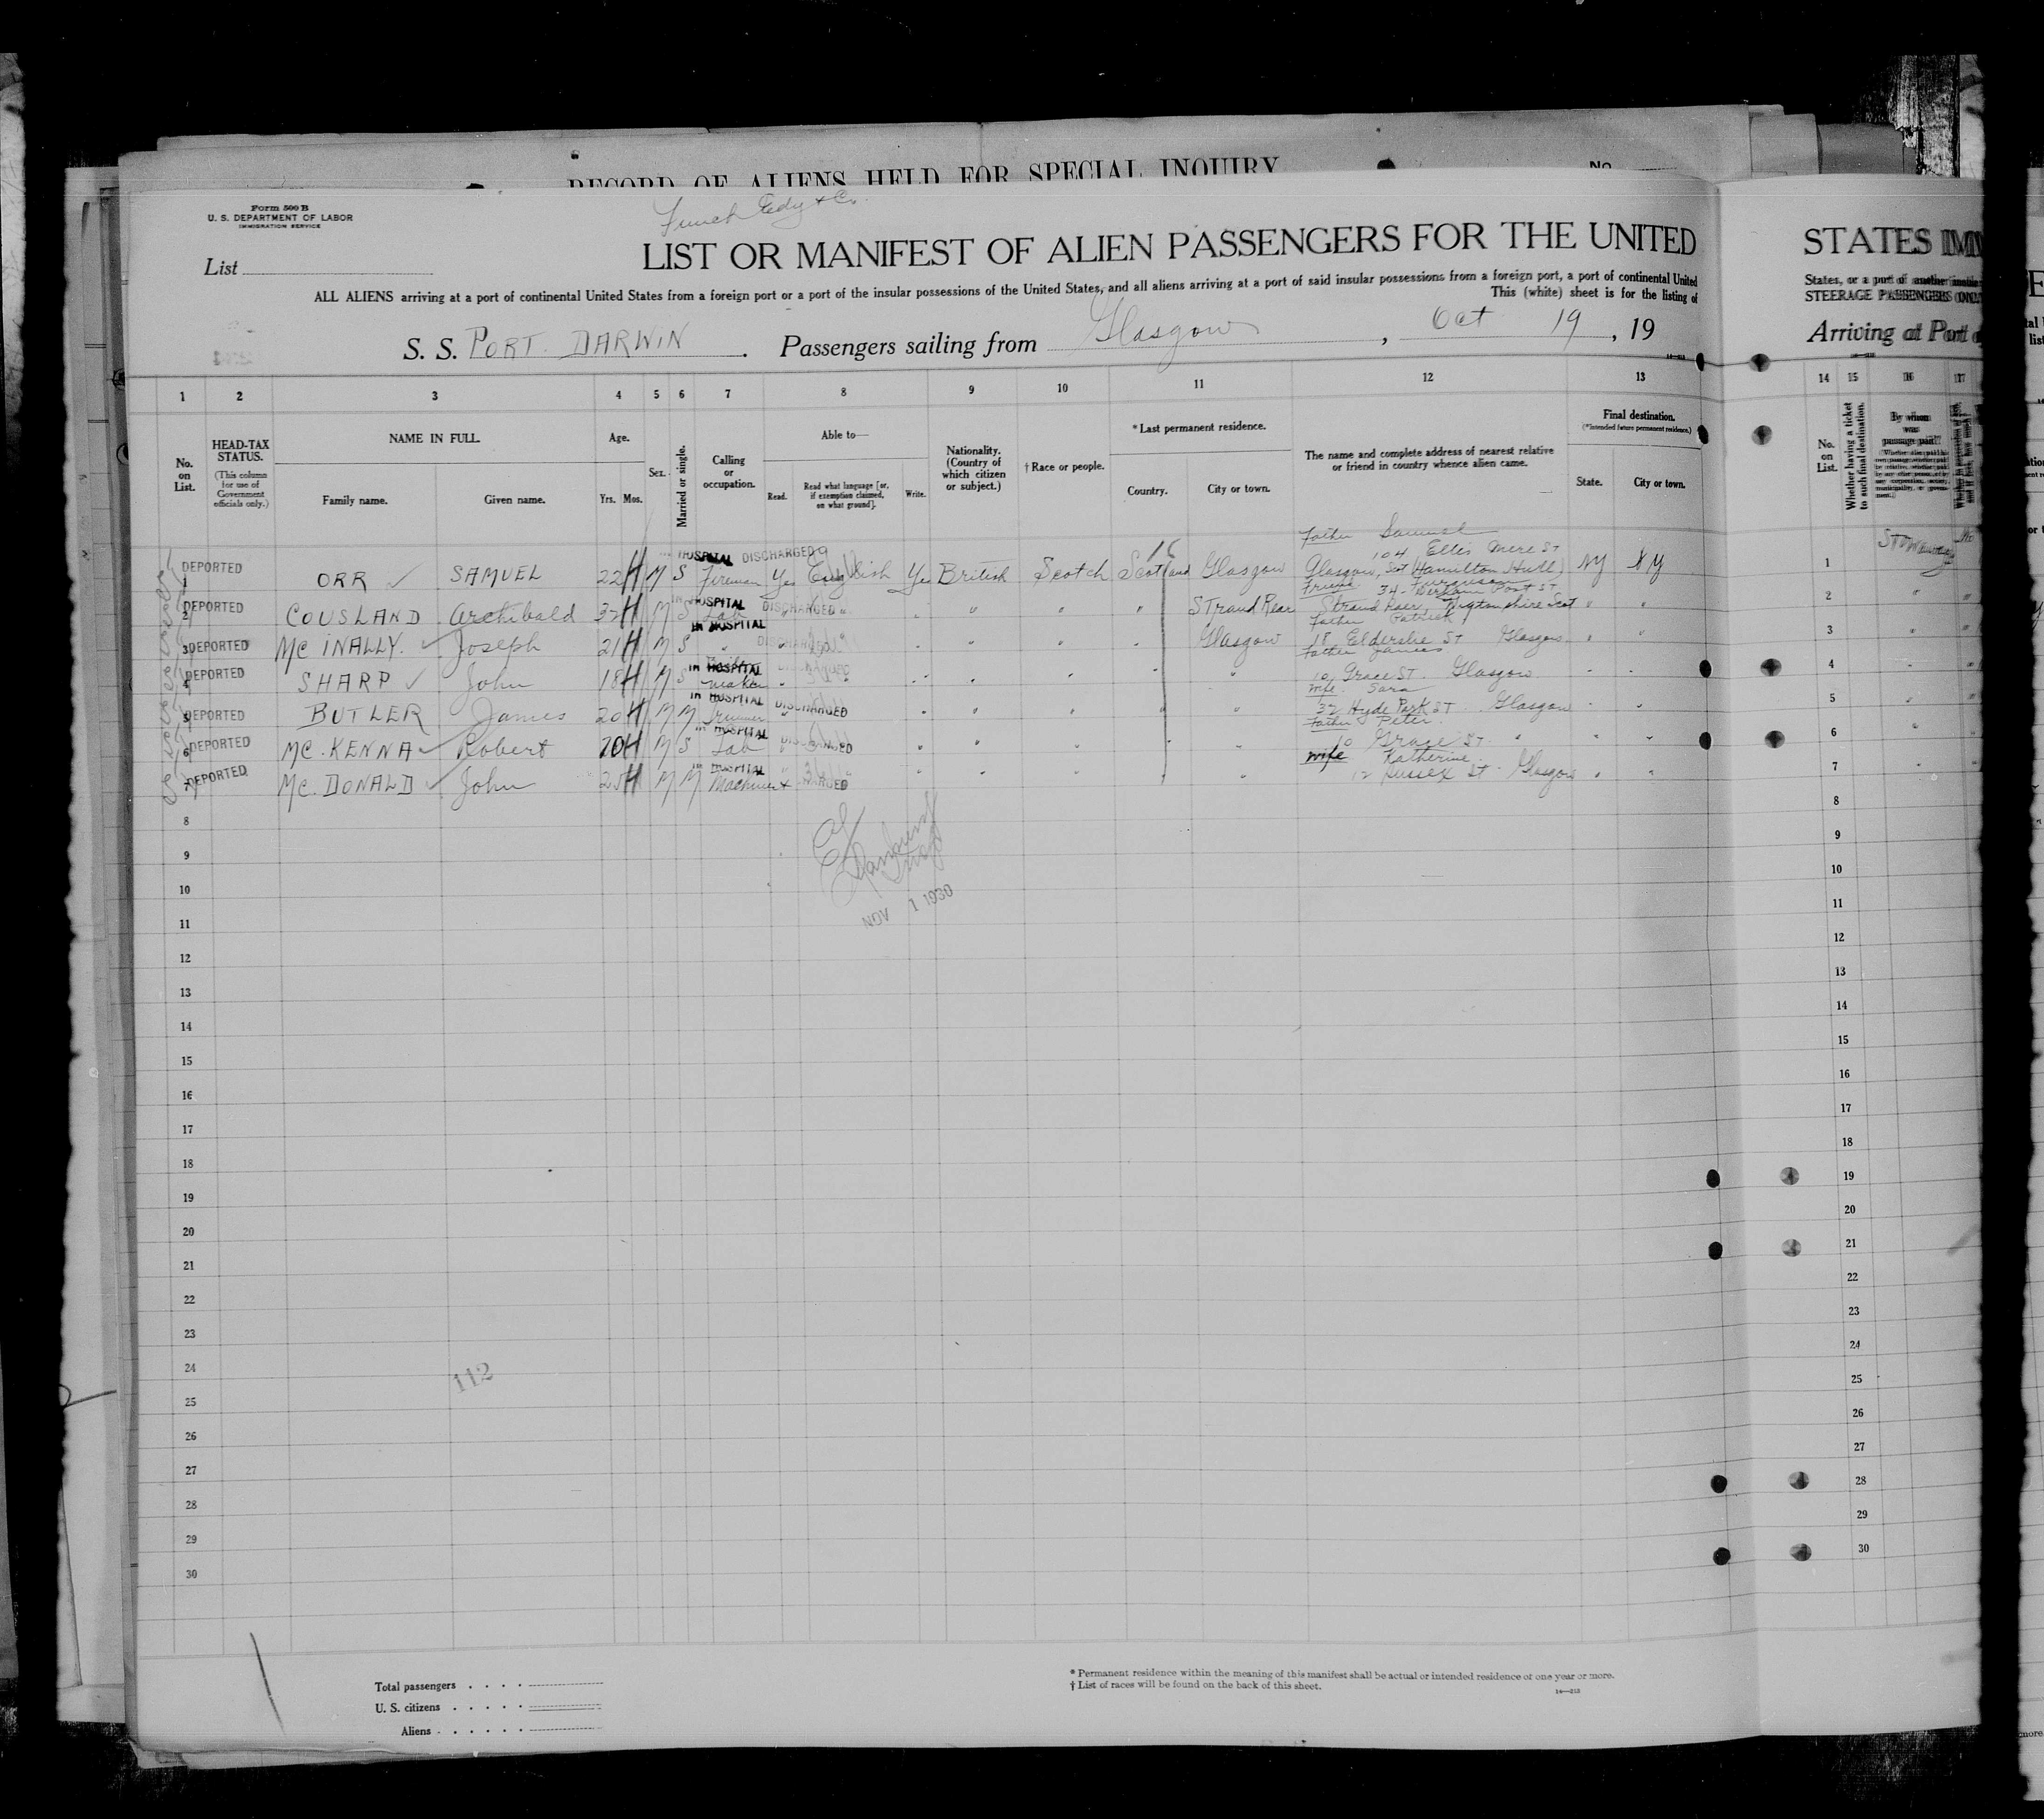 RECORD OF ALIENS HELD FOR SPECIAL INQUIRY No.
Form 500 B
U. S. DEPARTMENT OF LABOR
IMMIGRATION SERVICE
Funch Edy & Co.
List
LIST OR MANIFEST OF ALIEN PASSENGERS FOR THE UNITED STATES
ALL ALIENS arriving at a port of continental United States from a foreign port or a port of the insular possessions of the United States, and all aliens arriving at a port of said insular possessions from a foreign port, a port of continental United States, or a port of another
This (white) sheet is for the listing of STEERAGE PASSENGERS
S. S. PORT DARWIN. Passengers sailing from Glasgow, Oct 19, 19 Arriving at Port
1 2 3 4 5 6 7 8 9 10 11 12 13 14 15 16 17
No. on List.
HEAD-TAX STATUS.
(This column for use of Government officials only.)
NAME IN FULL.
Family name. Given name.
Age.
Yrs. Mos.
Sex.
Married or single.
Calling or occupation.
Able to—
Read. Read what language [or, if exemption claimed, on what ground]. Write.
Nationality. (Country of which citizen or subject.)
† Race or people.
* Last permanent residence.
Country. City or town.
The name and complete address of nearest relative or friend in country whence alien came.
Final destination.
(*Intended future permanent residence.)
State. City or town.
No. on List.
Whether having a ticket to such final destination.
By whom was passage paid?
IN HOSPITAL DISCHARGED
Father Samuel
DEPORTED 1 ORR SAMUEL 22 M S Fireman Yes English Yes British Scotch Scotland Glasgow 104 Ellis mere St Glasgow, Scot (Hamilton Hull) NY NY 1
IN HOSPITAL DISCHARGED
Friend Ferguson
DEPORTED 2 COUSLAND Archibald 32 M S Lab " " " " " " Strand Rear 34 St Strand Raer, Wigtonshire Scot " " 2
IN HOSPITAL DISCHARGED
Father Patrick
DEPORTED 3 Mc INALLY. Joseph 21 M S " " " " " " " Glasgow 18 Elderslie St Glasgow " " 3
IN HOSPITAL
Father James
DEPORTED 4 SHARP John 18 M S maker " " " " " " " 10 Grace ST. Glasgow " " 4
IN HOSPITAL DISCHARGED
wife Sara
DEPORTED 5 BUTLER James 20 M M " " " " " " " 32 Hyde Park ST. Glasgow " " 5
IN HOSPITAL DISCHARGED
Father Peter
DEPORTED 6 MC. KENNA Robert 20 M S Lab " " " " " " " 10 Grace St " " " 6
IN HOSPITAL
wife Katherine
DEPORTED 7 MC. DONALD John 25 M M Machinist " " " " " " 12 Sussex St. Glasgow " " 7
8 8
9 9
10 10
NOV 1 1930
11 11
12 12
13 13
14 14
15 15
16 16
17 17
18 18
19 19
20 20
21 21
22 22
23 23
24 24
112
25 25
26 26
27 27
28 28
29 29
30 30
Total passengers
U. S. citizens
Aliens
* Permanent residence within the meaning of this manifest shall be actual or intended residence of one year or more.
† List of races will be found on the back of this sheet.
14—212